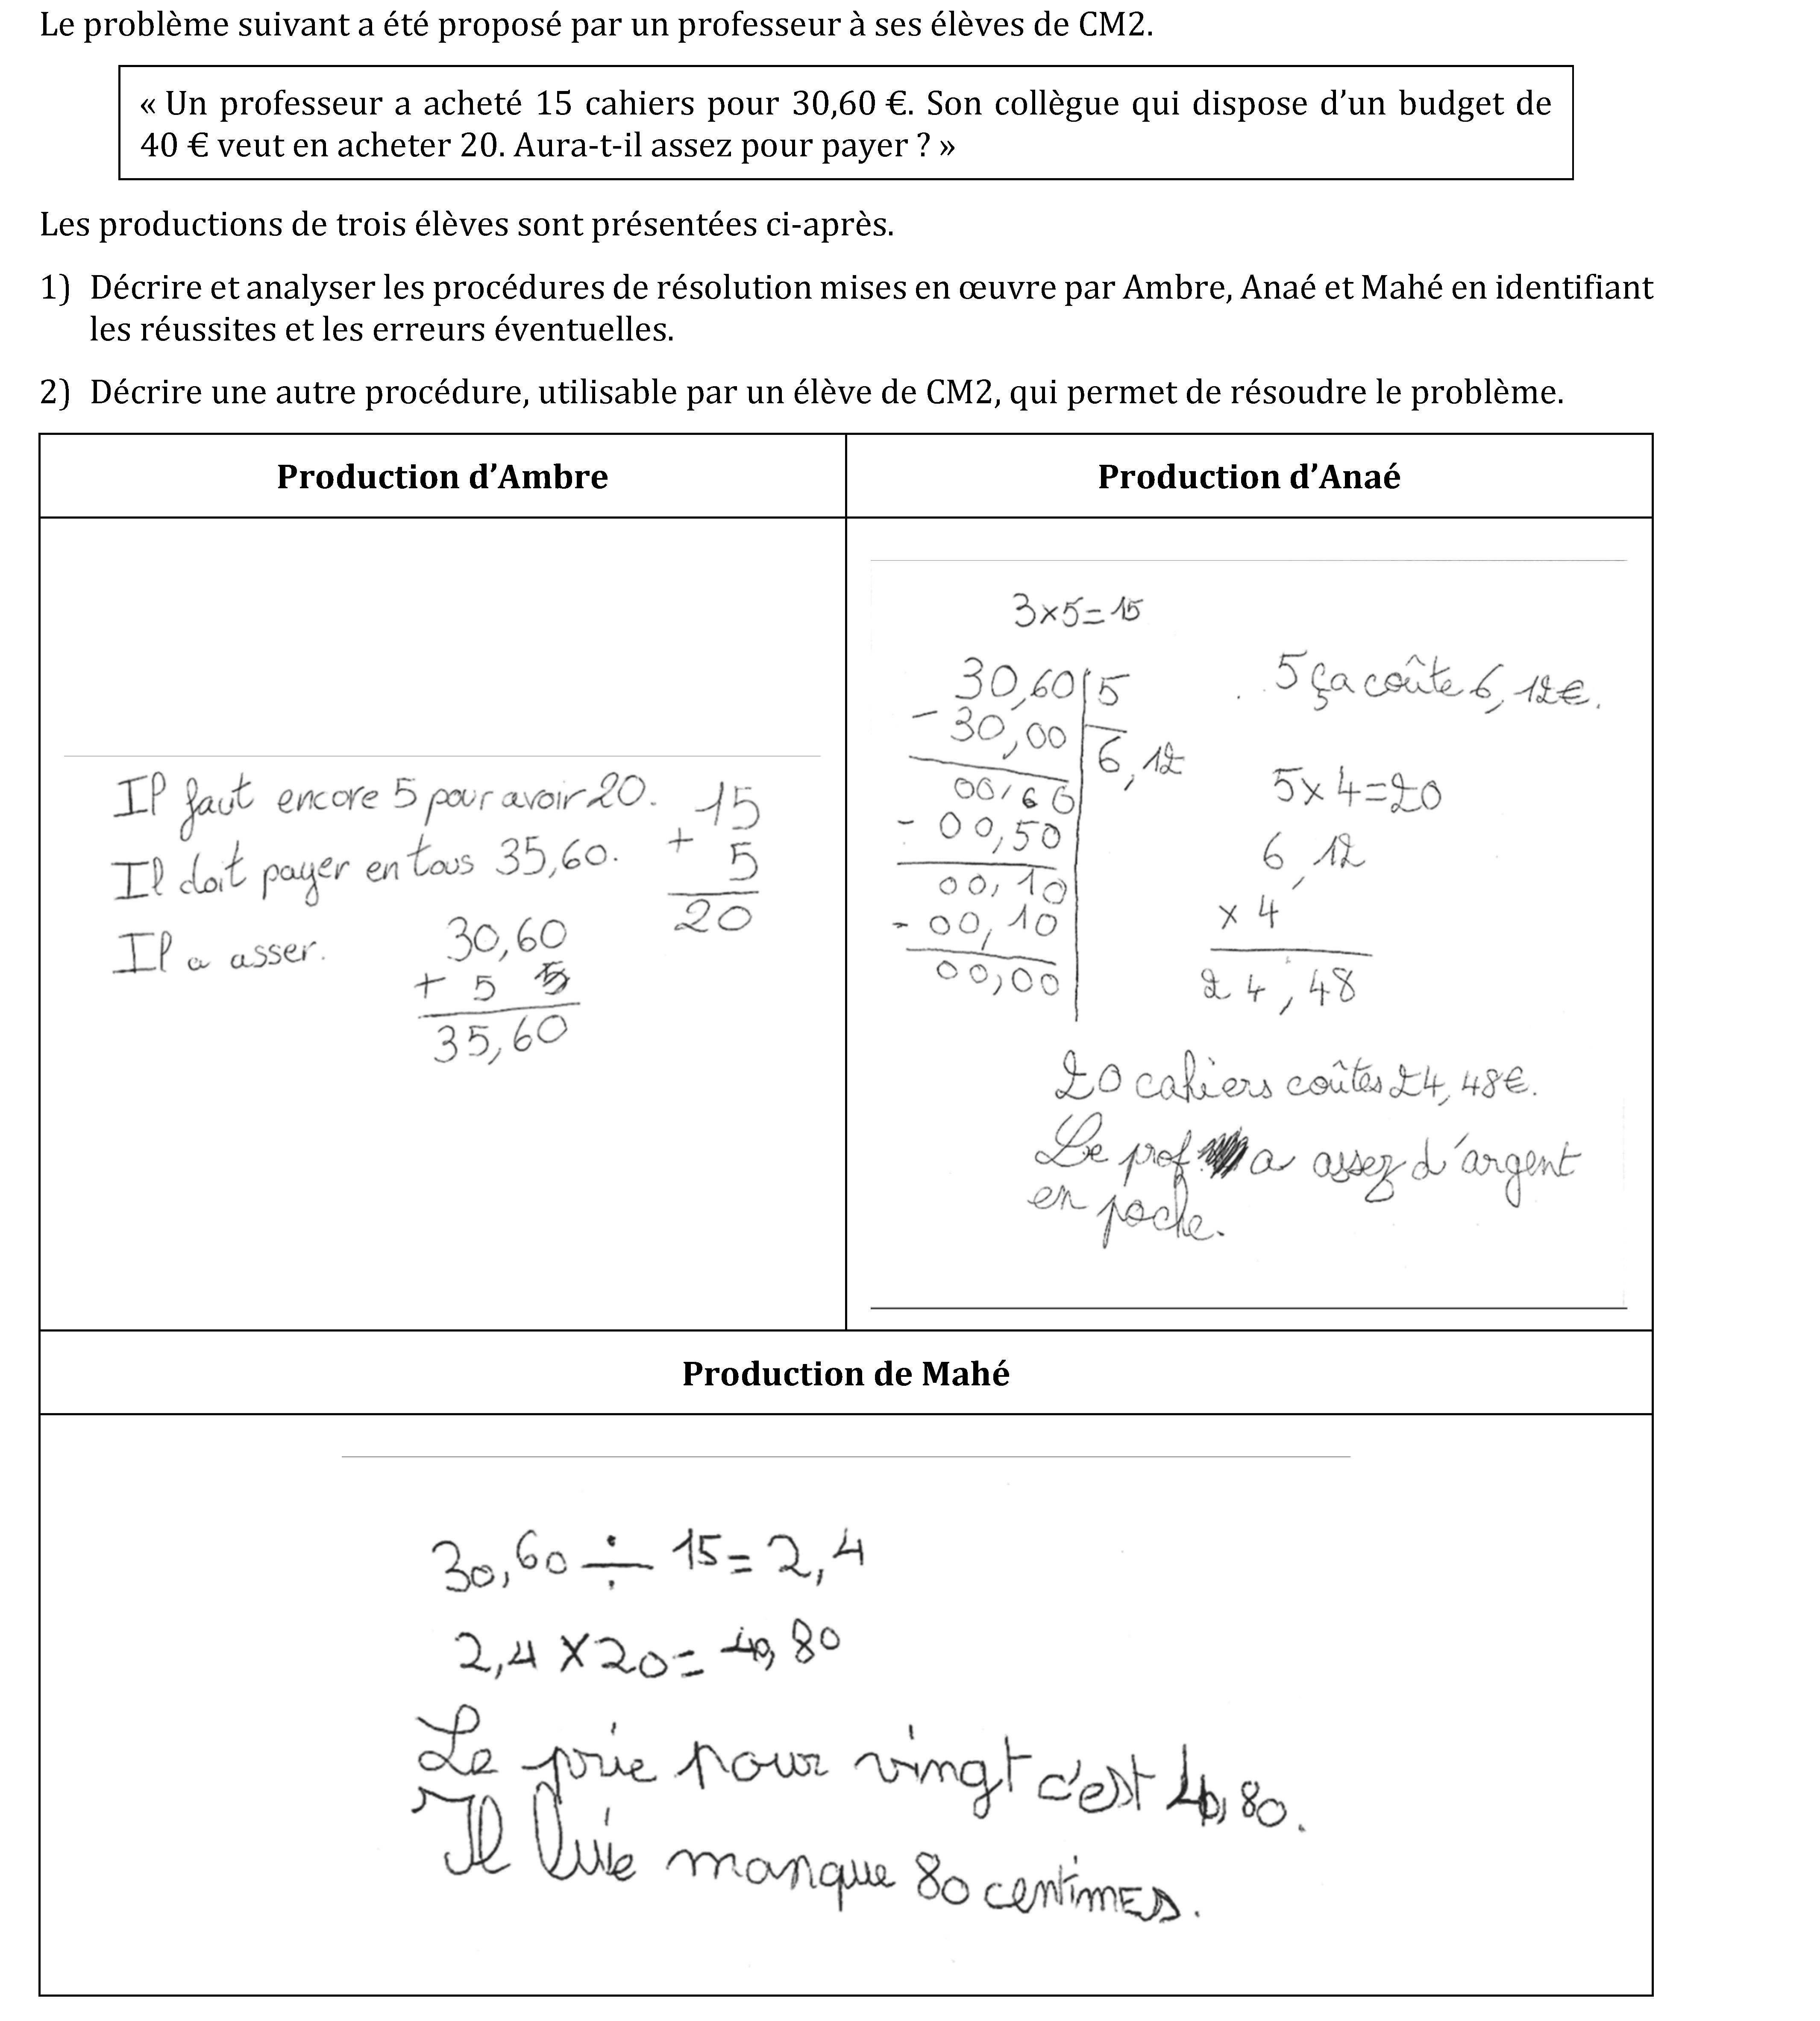 Le problème suivant a été proposé par un professeur à ses élèves de CM2.
« Un professeur a acheté 15 cahiers pour 30,60 €. Son collègue qui dispose d’un budget de
40 € veut en acheter 20. Aura-t-il assez pour payer ? »
Les productions de trois élèves sont présentées ci-après.
1) Décrire et analyser les procédures de résolution mises en œuvre par Ambre, Anaé et Mahé en identifiant
les réussites et les erreurs éventuelles.
2) Décrire une autre procédure, utilisable par un élève de CM2, qui permet de résoudre le problème.
Production d’Ambre
Il faut encore 5 pour avoir 20.
Il doit payer en tous 35,60.
Il a asser.
15
+ 5
20
30,60
+ 5
35,60
Production d’Anaé
3x5=15
30,60 5
- 30,00 6,12
00,60
- 00,50
00,10
- 00,10
00,00
5 ça coûte 6,12€.
5x4=20
6,12
x 4
24,48
20 cahiers coûtes 24,48€.
Le prof a assez d'argent
en poche.
Production de Mahé
30,60 ÷ 15 = 2,4
2,4 X 20 = 40,80
Le prie pour vingt c'est 40,80.
Il luie manque 80 centimes.